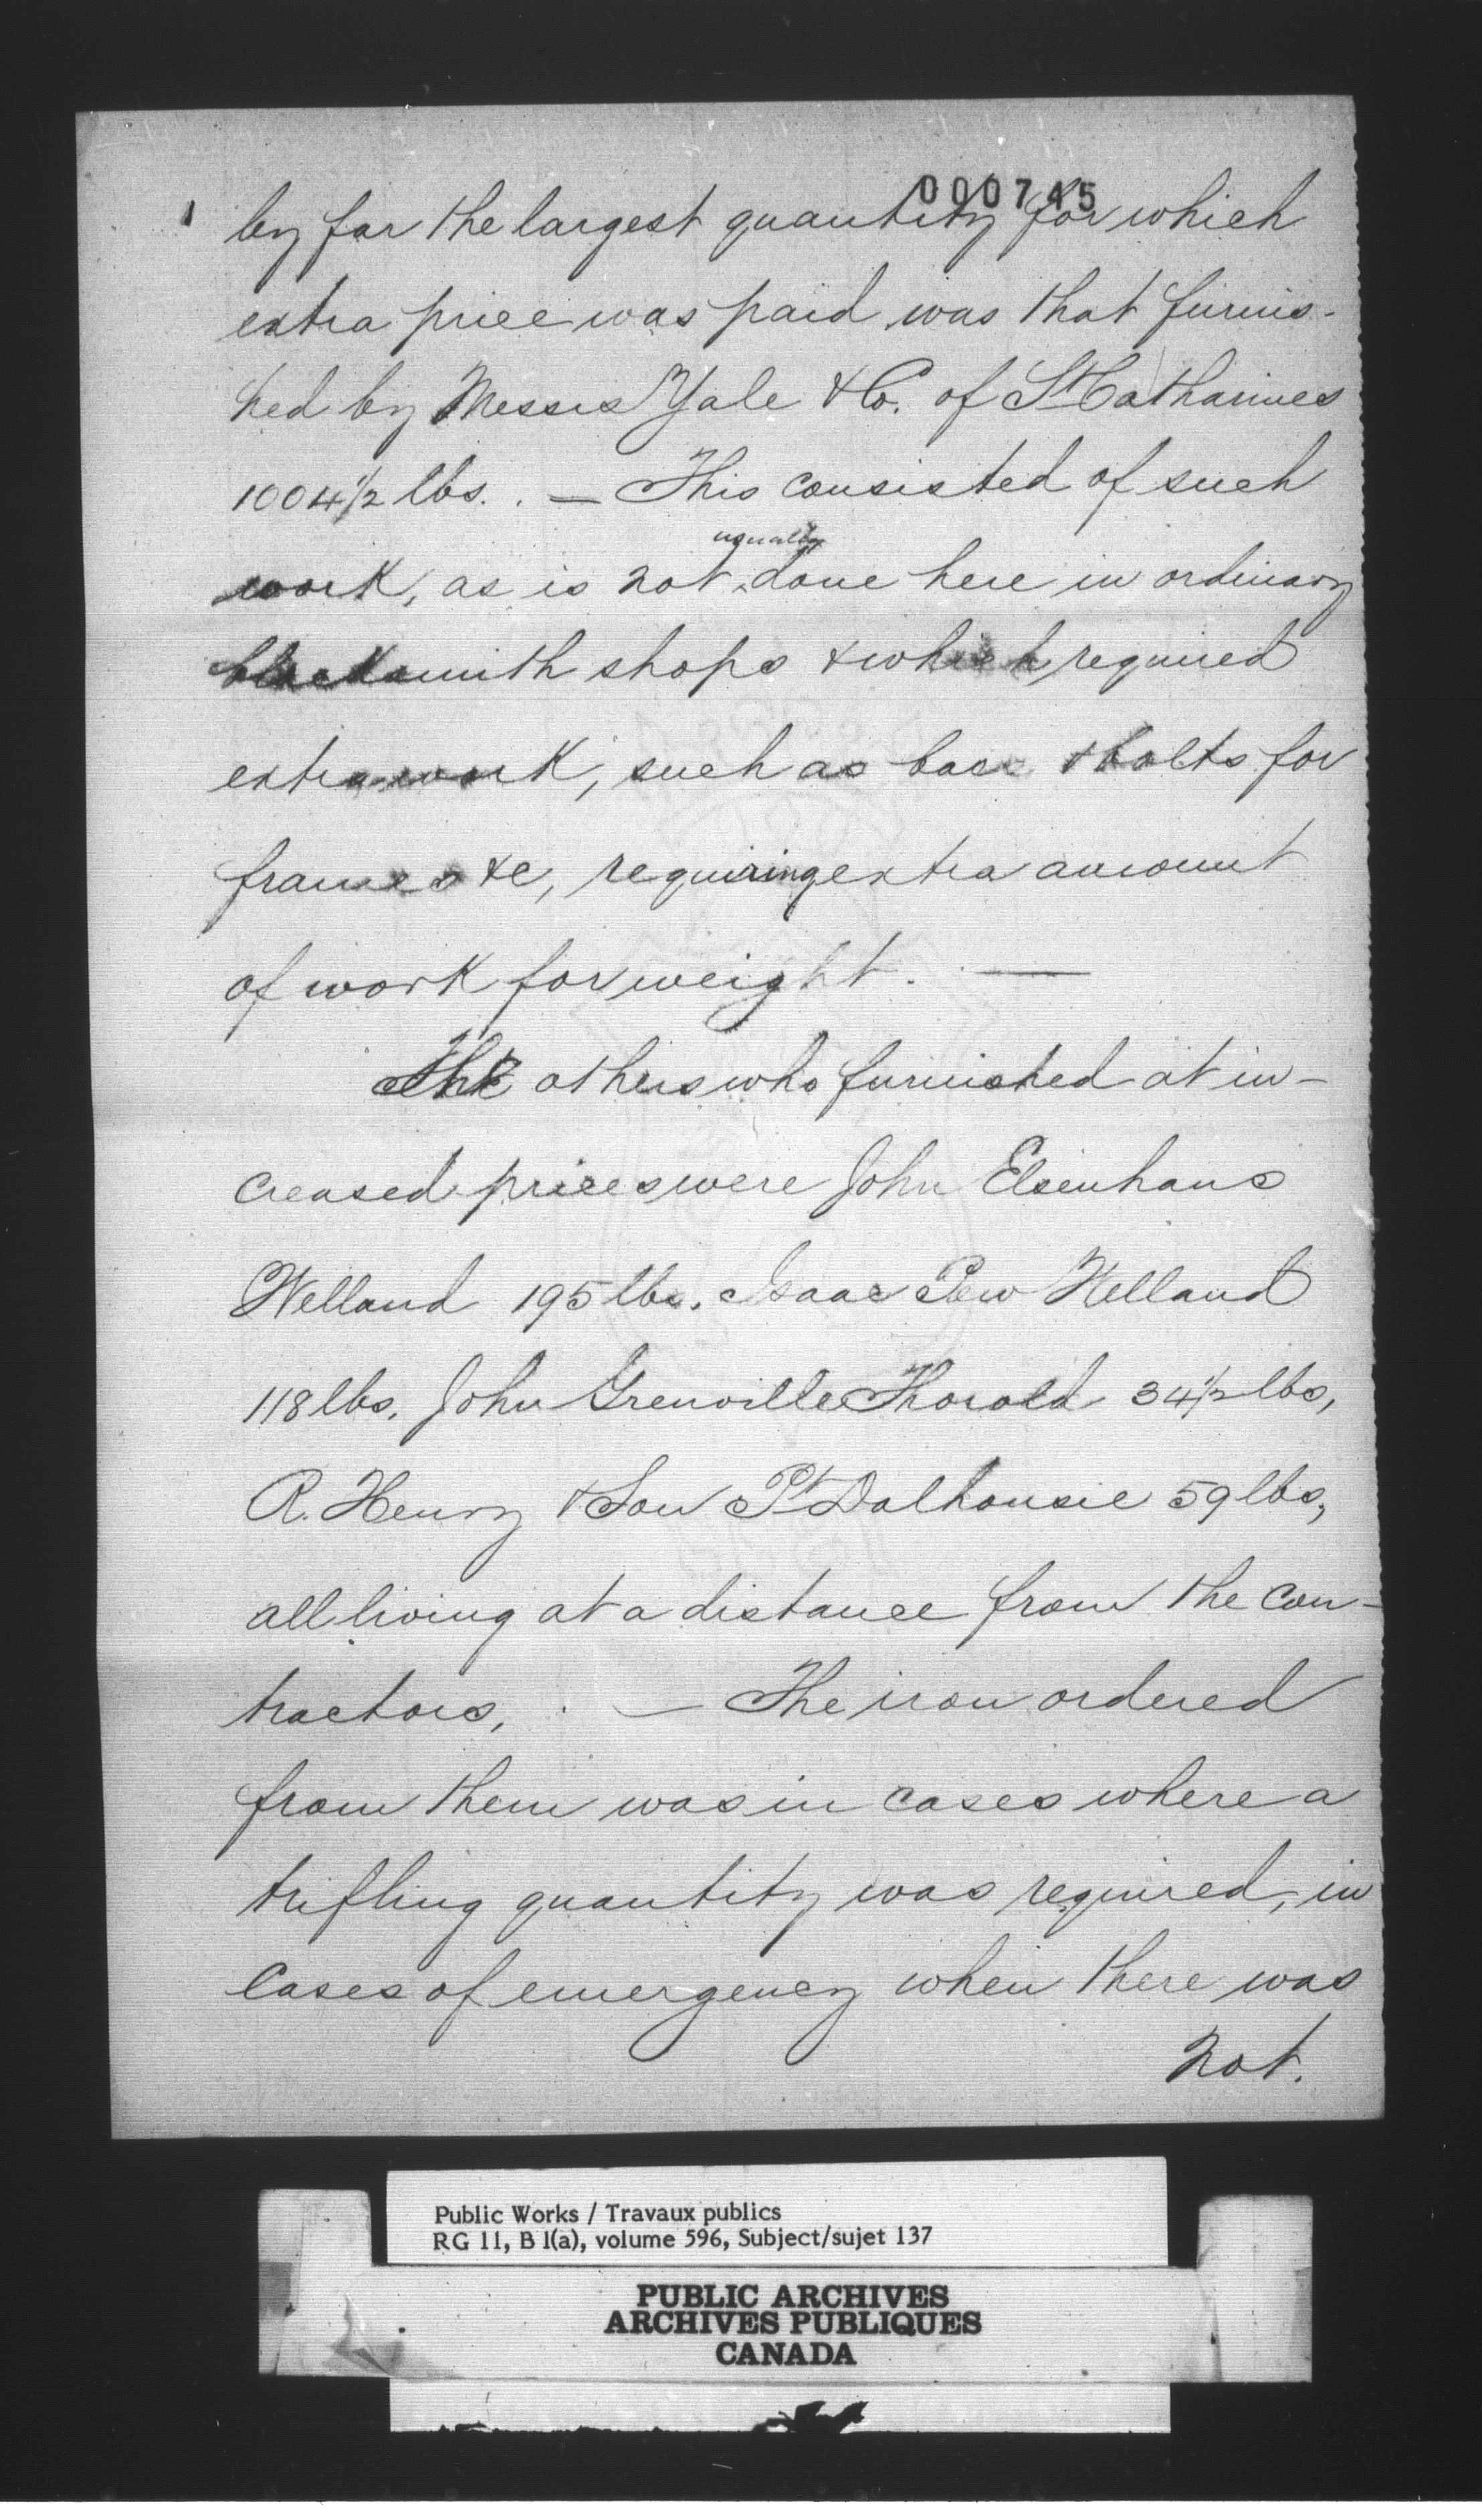 000745
by far the largest quantity for which
extra price was paid was that furnis-
hed by Messrs Yale & Co. of St Catharines
1004 1/2 lbs. . — This consisted of such
usually
work, as is not done here in ordinary
blacksmith shops & which required
extra work, such as bars & bolts for
frames &c, requiring extra amount
of work for weight. —
The others who furnished at in-
creased prices were John Elsenhans
Welland 195 lbs. Isaac Pew Welland
118 lbs. John Grenville Thorold 34 1/2 lbs,
R. Henry & Son Pt Dalhousie 59 lbs,
all living at a distance from the con-
tractors, . — The iron ordered
from them was in cases where a
trifling quantity was required, in
cases of emergency when there was
not.
Public Works / Travaux publics
RG 11, B 1(a), volume 596, Subject/sujet 137
PUBLIC ARCHIVES
ARCHIVES PUBLIQUES
CANADA